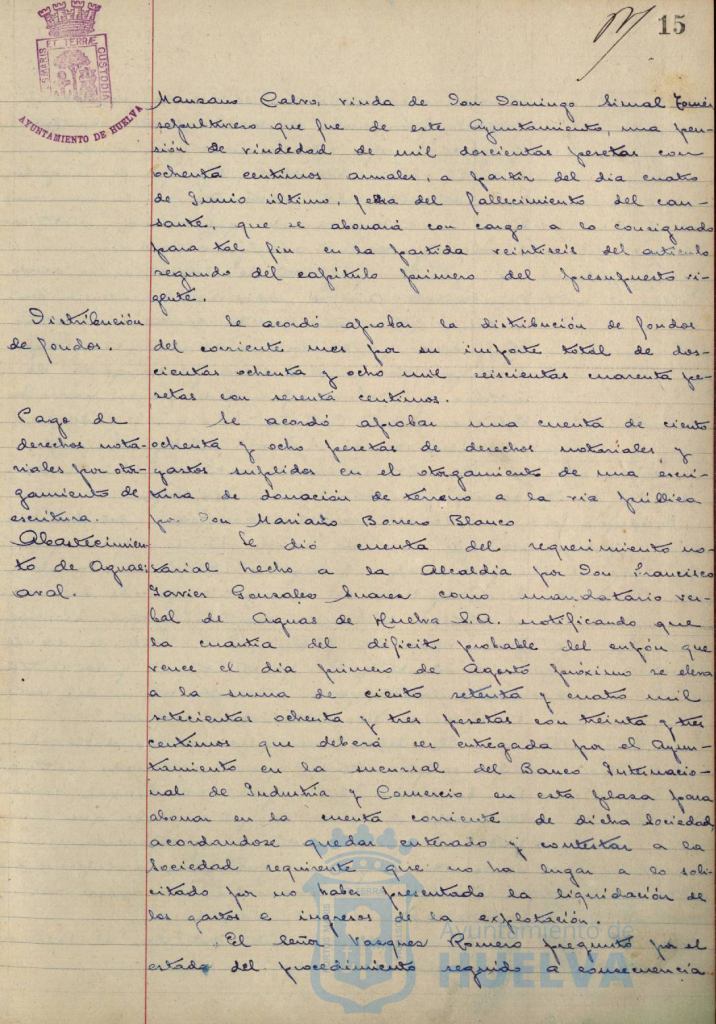 15
SMARIS ET TERRÆ CUSTODIA
AYUNTAMIENTO DE HUELVA
Manzano Calvo, viuda de Don Domingo Simal Tomé
sepulturero que fue de este Ayuntamiento, una pen-
sión de viudedad de mil doscientas pesetas con
ochenta centimos anuales, a partir del dia cuatro
de Junio último, fecha del fallecimiento del cau-
sante, que se abonará con cargo a lo consignado
para tal fin en la partida veintiseis del articulo
segundo del capítulo primero del presupuesto vi-
gente.
Distribución
de fondos.
Se acordó aprobar la distribución de fondos
del corriente mes por su importe total de dos-
cientas ochenta y ocho mil seiscientas cuarenta pe-
setas con sesenta centimos.
Pago de
derechos nota-
riales por otor-
gamiento de
escritura.
Se acordó aprobar una cuenta de ciento
ochenta y ocho pesetas de derechos notariales y
gastos suplidos en el otorgamiento de una escri-
tura de donación de terreno a la via pública
por Don Mariano Borrero Blanco
Abastecimien-
to de Aguas:
aval.
Se dió cuenta del requerimiento no-
tarial hecho a la Alcaldia por Don Francisco
Javier Gonzalez Suarez como mandatario ver-
bal de Aguas de Huelva S.A. notificando que
la cuantia del déficit probable del cupón que
vence el dia primero de Agosto próximo se eleva
a la suma de ciento setenta y cuatro mil
setecientas ochenta y tres pesetas con treinta y tres
centimos que deberá ser entregada por el Ayun-
tamiento en la sucursal del Banco Internacio-
nal de Industria y Comercio en esta plaza para
abonar en la cuenta corriente de dicha Sociedad,
acordandose quedar enterado y contestar a la
Sociedad requirente que no ha lugar a lo soli-
citado por no haber presentado la liquidación de
los gastos e ingresos de la explotación.
El Señor Vazquez Romero preguntó por el
estado del procedimiento seguido a consecuencia
Ayuntamiento de
HUELVA